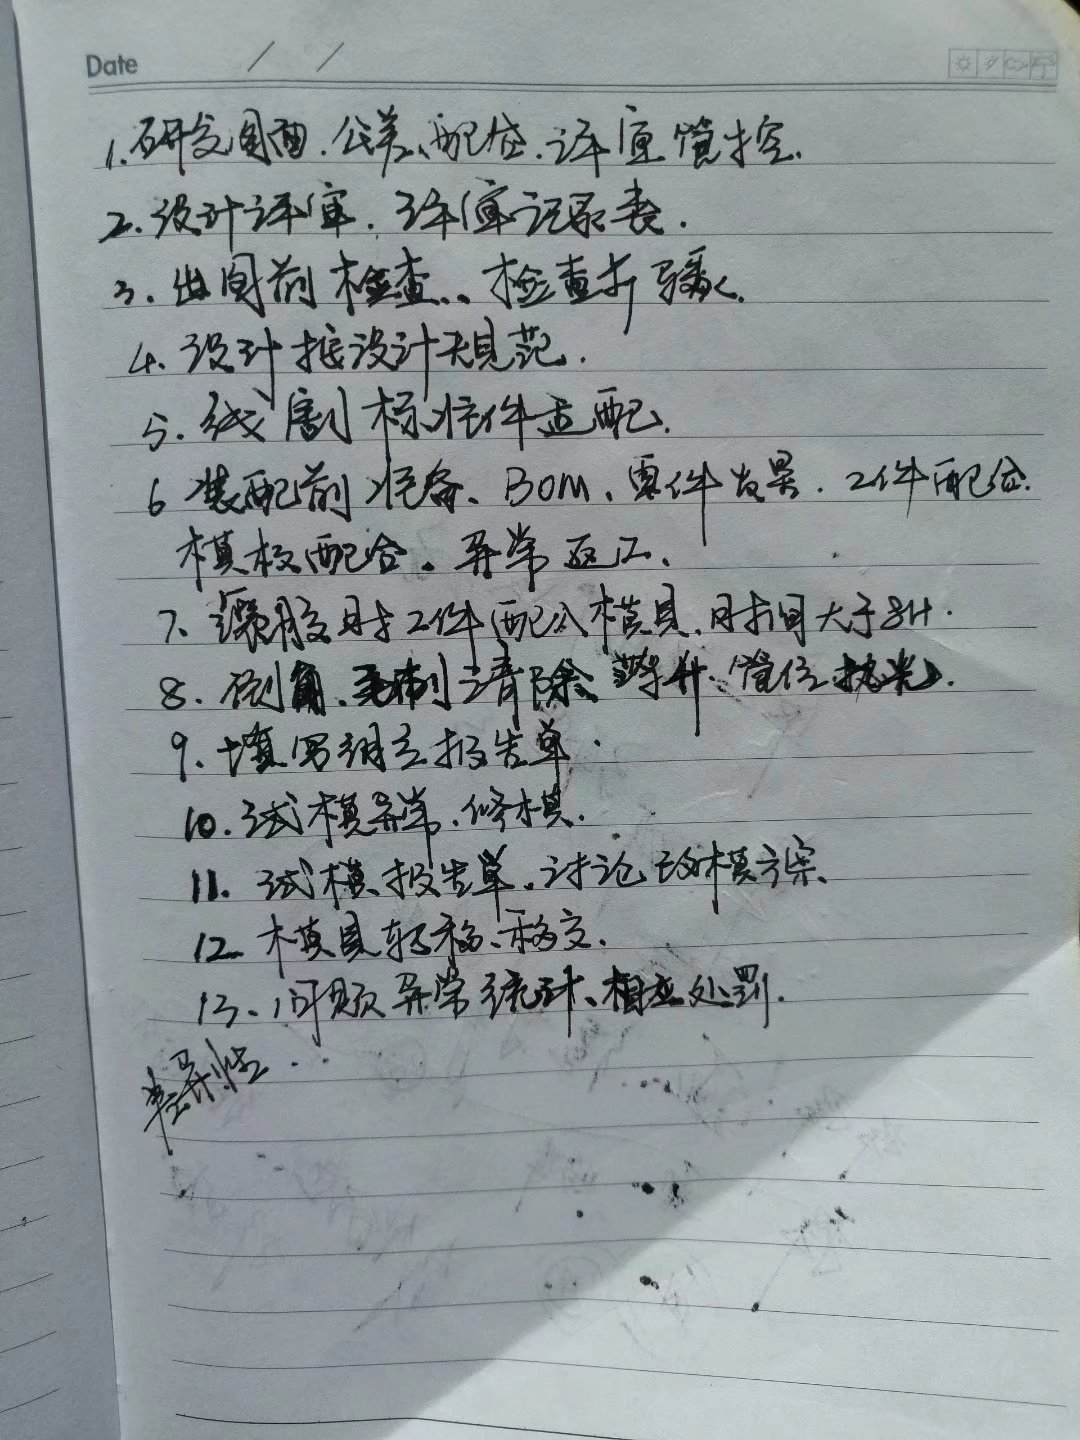 Date / /
1.研发图面.公差、配位.评审管控、
2.设计评审.评审记录表.
3.出图前检查、、检查步骤.
4.设计按设计规范.
5.线割标准件适配.
6装配前准备、BOM、零件发黑.工件配位.
模板配合.异常返工、
7、灌胶时工件配合模具、时间大于8H.
8.倒角、毛刺清除、零件、管位抛光.
9.填写组立报告单.
10.试模异常.修模.
11.试模报告单.讨论改模方案、
12.模具转移、移交.
13.问题异常统计、相应处罚.
异性...